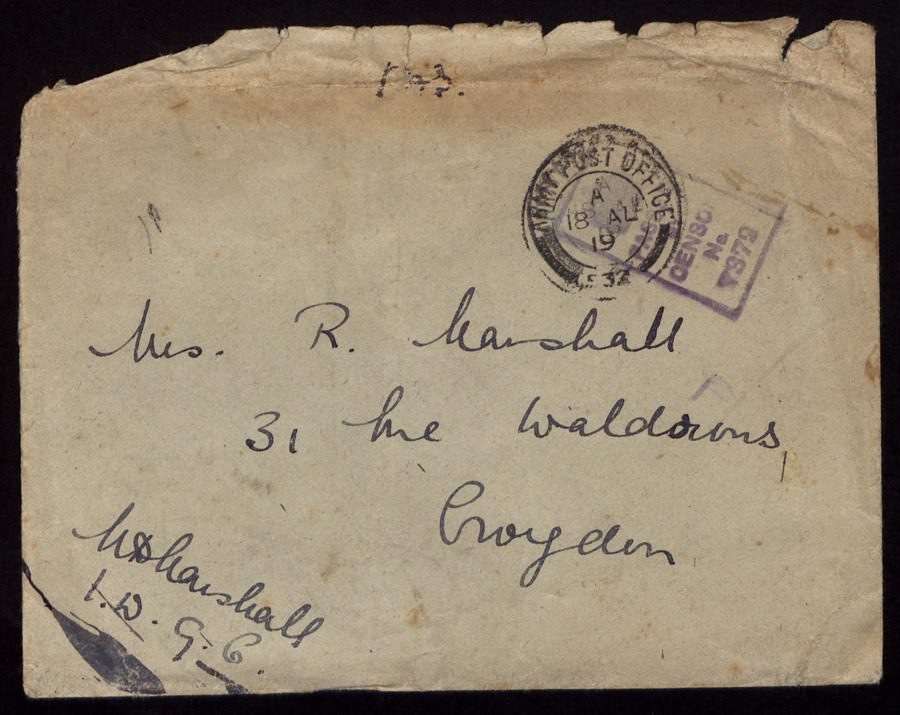 ARMY POST OFFICE
A
18 AU
19
S32
CENSOR
No.
Mrs. R. Marshall
31 The Waldrons,
Croydon
Marshall